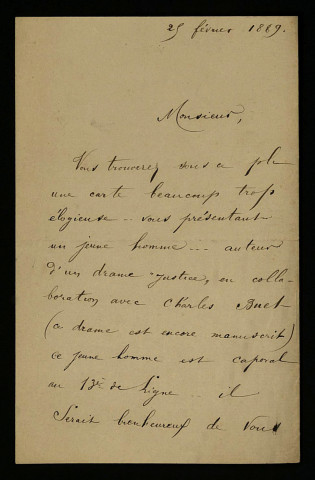 25 février 1869.
Monsieur,
Vous trouverez sous ce pli
une carte beaucoup trop
élogieuse .. vous présentant
un jeune homme ... auteur
d'un drame Justice, en colla-
boration avec Charles Buet
(ce drame est encore manuscrit)
ce jeune homme est caporal
au 13e de ligne .. il
serait bienheureux de vous